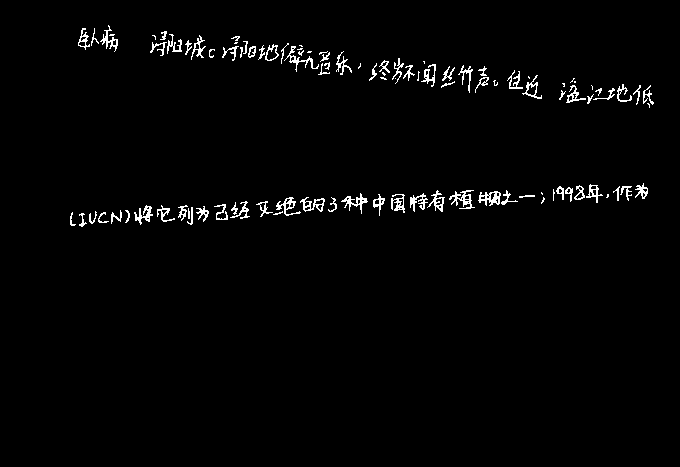 卧病 浔阳城。浔阳地僻无音乐，终岁不闻丝竹声。住近 湓江地低
(IUCN)将它列为已经灭绝的3种中国特有植物之一；1998年，作为